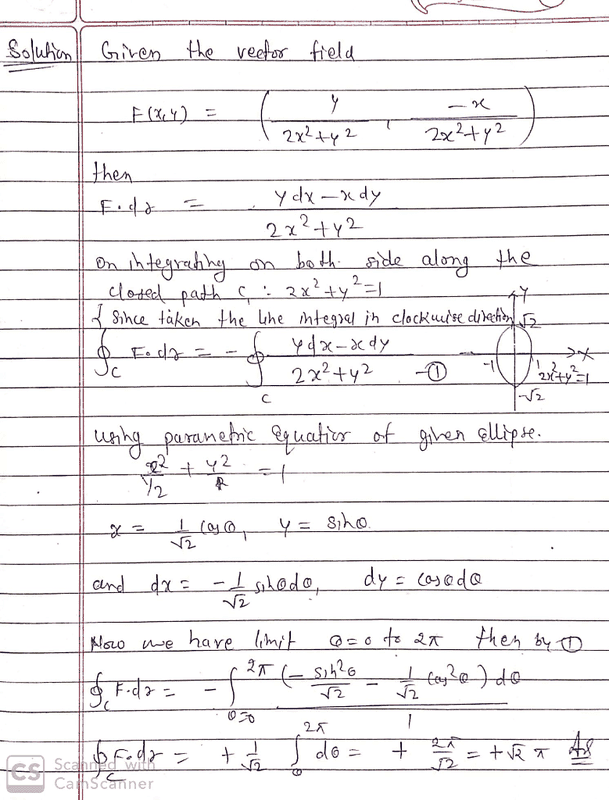 Solution Given the vector field
F(x,y) = ( y / 2x²+y² , -x / 2x²+y² )
then
F.dr = ydx-xdy / 2x²+y²
on integrating on both side along the
closed path C, : 2x²+y²=1
{ Since taken the line integral in clockwise direction
∮c F.dr = - ∮c ydx-xdy / 2x²+y² -①
Y √2
-1 1 X
2x²+y²=1
-√2
using parametric equation of given ellipse.
x²/½ + y²/1 = 1
x = 1/√2 cosθ, y = sinθ.
and dx = -1/√2 sinθdθ, dy = cosθdθ
Now we have limit θ=0 to 2π then by ①
∮c F.dr = - ∫θ=0 2π (- sin²θ/√2 - 1/√2 cos²θ) dθ / 1
∮c F.dr = + 1/√2 ∫0 2π dθ = + 2π/√2 = +√2 π Ans
CS Scanned with
CamScanner